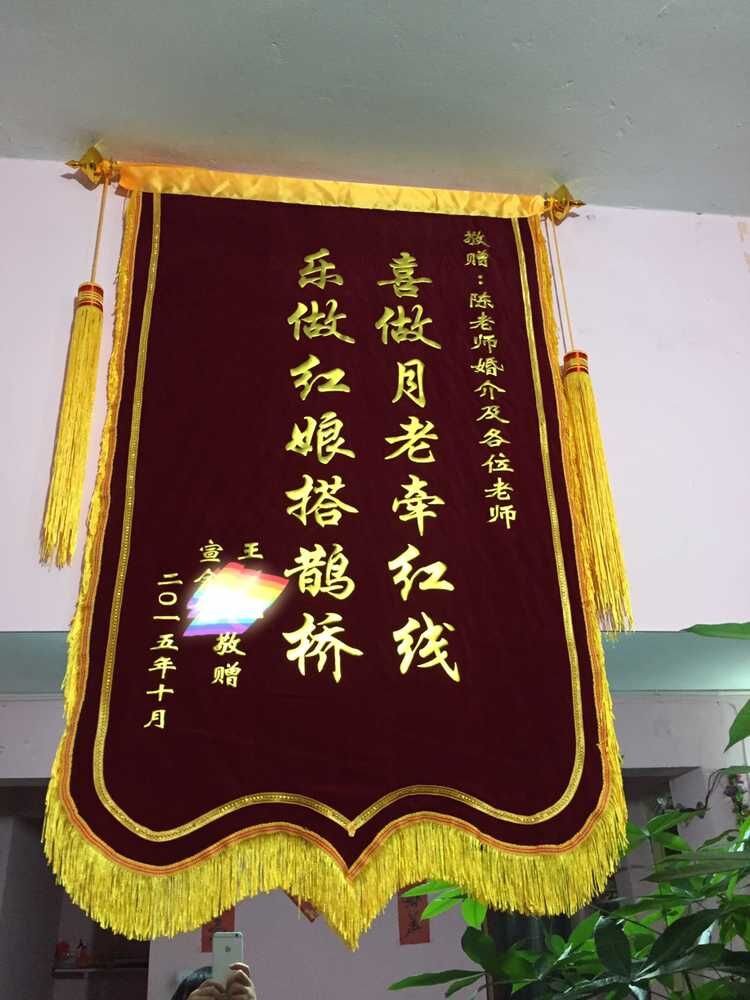 敬赠：陈老师婚介及各位老师
喜做月老牵红线
乐做红娘搭鹊桥
王
宣 敬赠
二〇一五年十月